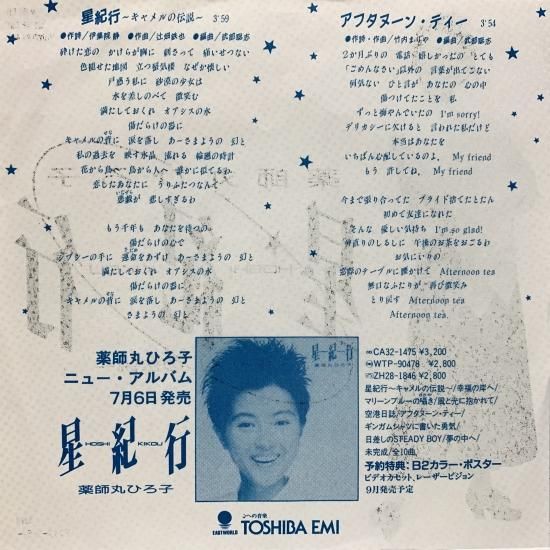 星紀行〜キャメルの伝説〜 3'59
●作詩/伊集院 静 ●作曲/辻畑鉄也 ●編曲/武部聡志
砕けた恋の かけらが胸に 刺さって 痛いせつない
色褪せた地図 立つ蜃気楼 なぜか懐しい
戸惑う私に 砂漠の少女は
水を差しのべて 微笑む
満たしておくれ オアシスの水
傷だらけの器に
キャメルの背に 涙を落し あーさまよう 幻と
私の過去を 映す水晶 流れる 輪廻の時計
花から鳥へ 鳥から人へ 誰かに似てる
恋したあなたに うりふたつなんて
悪戯が 悲しすぎるわ
もう千年も あなたを待つの
傷だらけの心で
ジプシーの手に 運命をあずけ あーさまよう 幻と
満たしておくれ オアシスの水
傷だらけの器に
キャメルの背に 涙を落し あーさまよう 幻と
さまよう 幻と
アフタヌーン・ティー 3'54
●作詩・作曲/竹内まりや ●編曲/武部聡志
2カ月ぶりの 電話 嬉しかったの とても
「ごめんなさい」以外の 言葉が出てこない
何気ない ひと言が あなたの 心の中
傷つけてたことを 私
ずっと悔やんでいたの I'm sorry!
デリカシーに欠けると 言われた私だけど
本当はあなたを
いちばん心配しているのよ、 My friend
もう 許してね、 My friend
今まで張り合ってた プライド捨てたとたん
初めて友達になれた
そんな 優しい気持ち I'm so glad!
仲直りのしるしに 午後のお茶をおごるわ
お気にいりの
窓際のテーブルに腰かけて Afternoon tea
無口なふたりが 再び微笑み
とり戻す Afternoon tea
Afternoon tea.
薬師丸ひろ子
ニュー・アルバム
7月6日発売
星紀行
HOSHI KIKOU
薬師丸ひろ子
星紀行
薬師丸ひろ子
●CA32-1475 ¥3,200
●WTP-90478 ¥2,800
●ZH28-1846 ¥2,800
星紀行〜キャメルの伝説〜/幸福の岸へ/
マリーンブルーの囁き/風と光に抱かれて/
空港日誌/アフタヌーン・ティー/
ギンガムシャツに書いた勇気/
日差しのSTEADY BOY/夢の中へ/
未完成/全10曲
予約特典:B2カラー・ポスター
ビデオカセット、レーザービジョン
9月発売予定
EASTWORLD
心への音楽
TOSHIBA EMI